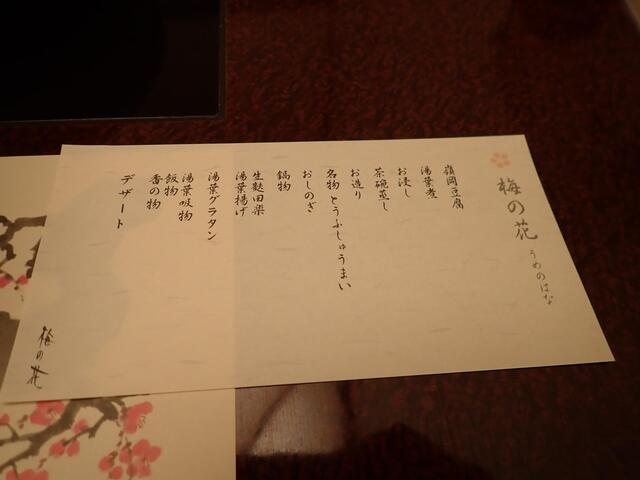 梅の花 うめのはな
嶺岡豆腐
湯葉煮
お浸し
茶碗蒸し
お造り
名物 とうふしゅうまい
おしのぎ
鍋物
生麩田楽
湯葉揚げ
湯葉グラタン
湯葉吸物
飯物
香の物
デザート
梅の花